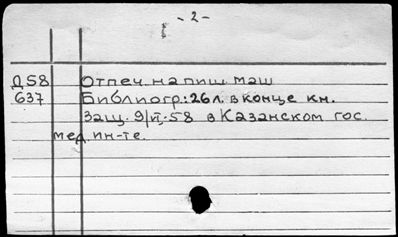 - 2 -
Д58 Отпеч. на пиш. маш
637 Библиогр.: 26 л. в конце кн.
Защ. 9/VI-58 в Казанском гос.
мед. ин-те.